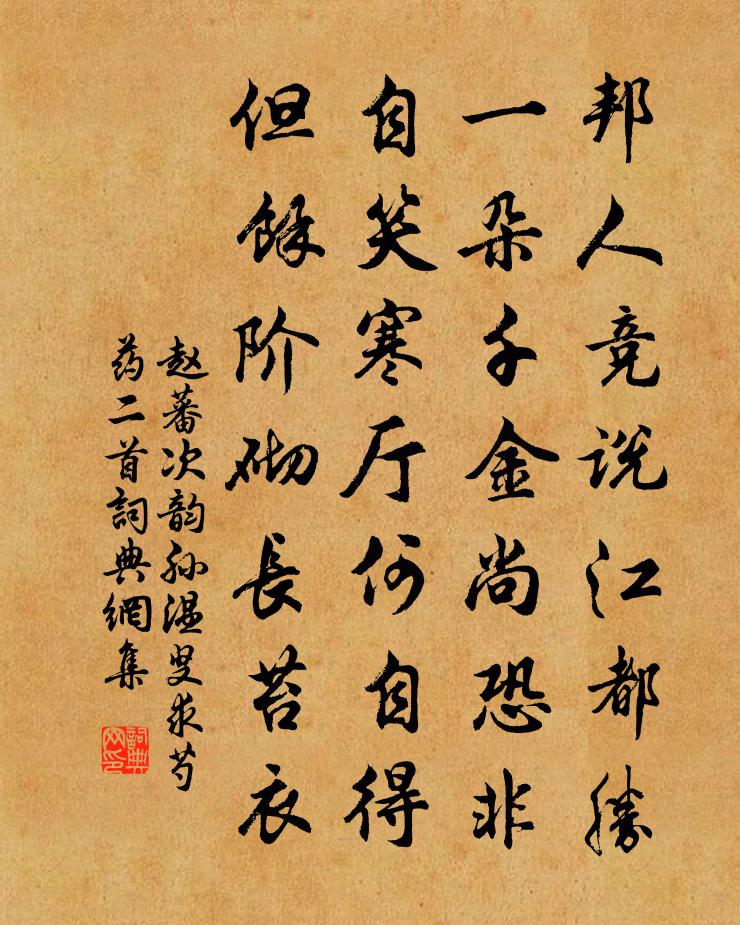 邦人竞说江都勝
一朵千金尚恐非
自笑寒厅何自得
但餘阶砌長苔衣
赵蕃次韵孙温叟求芍
药二首詞典網集
詞典网印